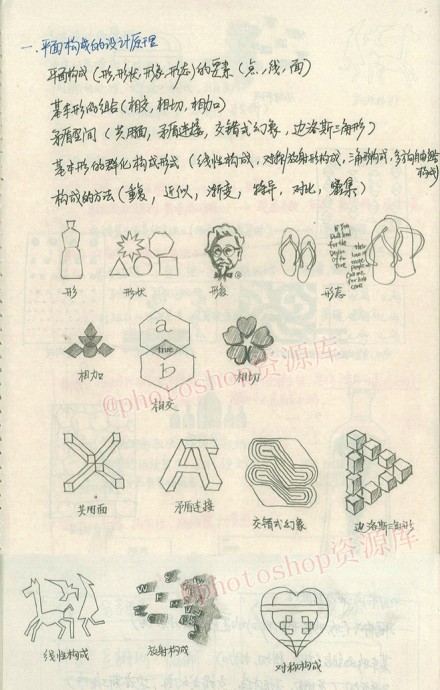 一.平面构成的设计原理
平面构成(形,形状,形象,形态)的要素(点,线,面)
基本形的组合(相交,相切,相加)
矛盾空间(共用面,矛盾连接,交错式幻象,边洛斯三角形)
基本形的群化构成形式(线性构成,对称放射形构成,三角形构成,多方向自由构成)
构成的方法(重复,近似,渐变,特异,对比,密集)
形 形状 形象 形态
a
true
b
相加 相交 相切
@photoshop资源库
共用面 矛盾连接 交错式幻象 边洛斯三角形
@photoshop资源库
线性构成 放射构成 对称构成